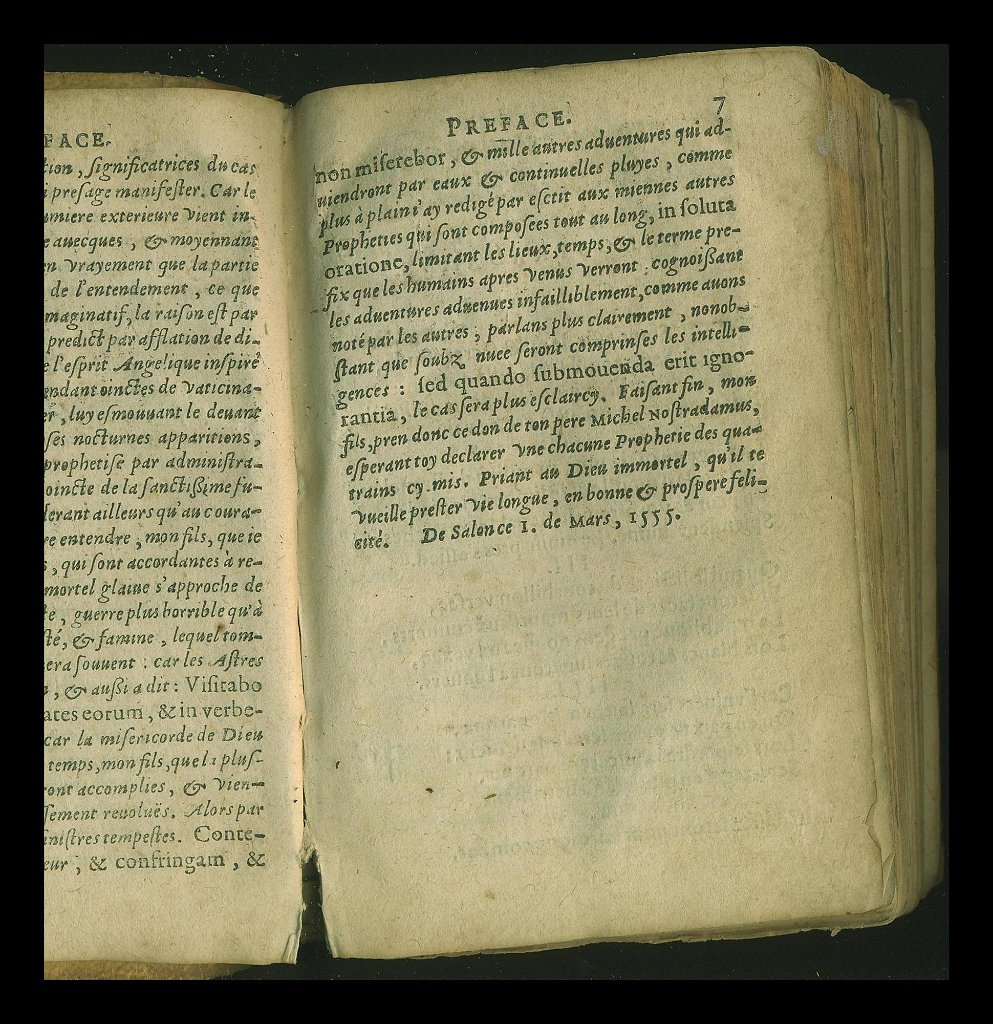 FACE.
tion, ſignificatrices du cas
i preſage manifeſter. Car le
umiere exterieure vient in-
e auecques, & moyennant
en vrayement que la partie
de l'entendement, ce que
maginatif, la raiſon eſt par
predict par afflation de di-
e l'eſprit Angelique inſpiré
endant oinctes de vaticina-
er, luy eſmouuant le deuant
ſes nocturnes apparitions,
prophetiſe par adminiſtra-
oincte de la ſanctiſſime fu-
derant ailleurs qu'au coura-
re entendre, mon fils, que ie
s, qui ſont accordantes à re-
mortel glaiue s'approche de
te, guerre plus horrible qu'à
té, & famine, lequel tom-
era ſouuent : car les Aſtres
n, & auſſi a dit : Viſitabo
ates eorum, & in verbe-
car la miſericorde de Dieu
temps, mon fils, que la pluſ-
ront accomplies, & vien-
ſement reuoluës. Alors par
iniſtres tempeſtes. Conte-
eur, & confringam, &
PREFACE. 7
non miſerebor, & mille autres aduentures qui ad-
uiendront par eaux & continuelles pluyes, comme
plus à plain i'ay redigé par eſctit aux miennes autres
Propheties qui ſont compoſees tout au long, in ſoluta
oratione, limitant les lieux, temps, & le terme pre-
fix que les humains apres venus verront cognoiſſant
les aduentures aduenues infailliblement, comme auons
noté par les autres, parlans plus clairement, nonob-
ſtant que ſoubz nuee ſeront comprinſes les intelli-
gences : ſed quando ſubmouenda erit igno-
rantia, le cas ſera plus eſclaircy. Faiſant fin, mon
fils, pren donc ce don de ton pere Michel Noſtradamus,
eſperant toy declarer vne chacune Prophetie des qua-
trains cy mis. Priant au Dieu immortel, qu'il te
vueille preſter vie longue, en bonne & proſpere feli-
cité. De Salonce 1. de Mars, 1555.